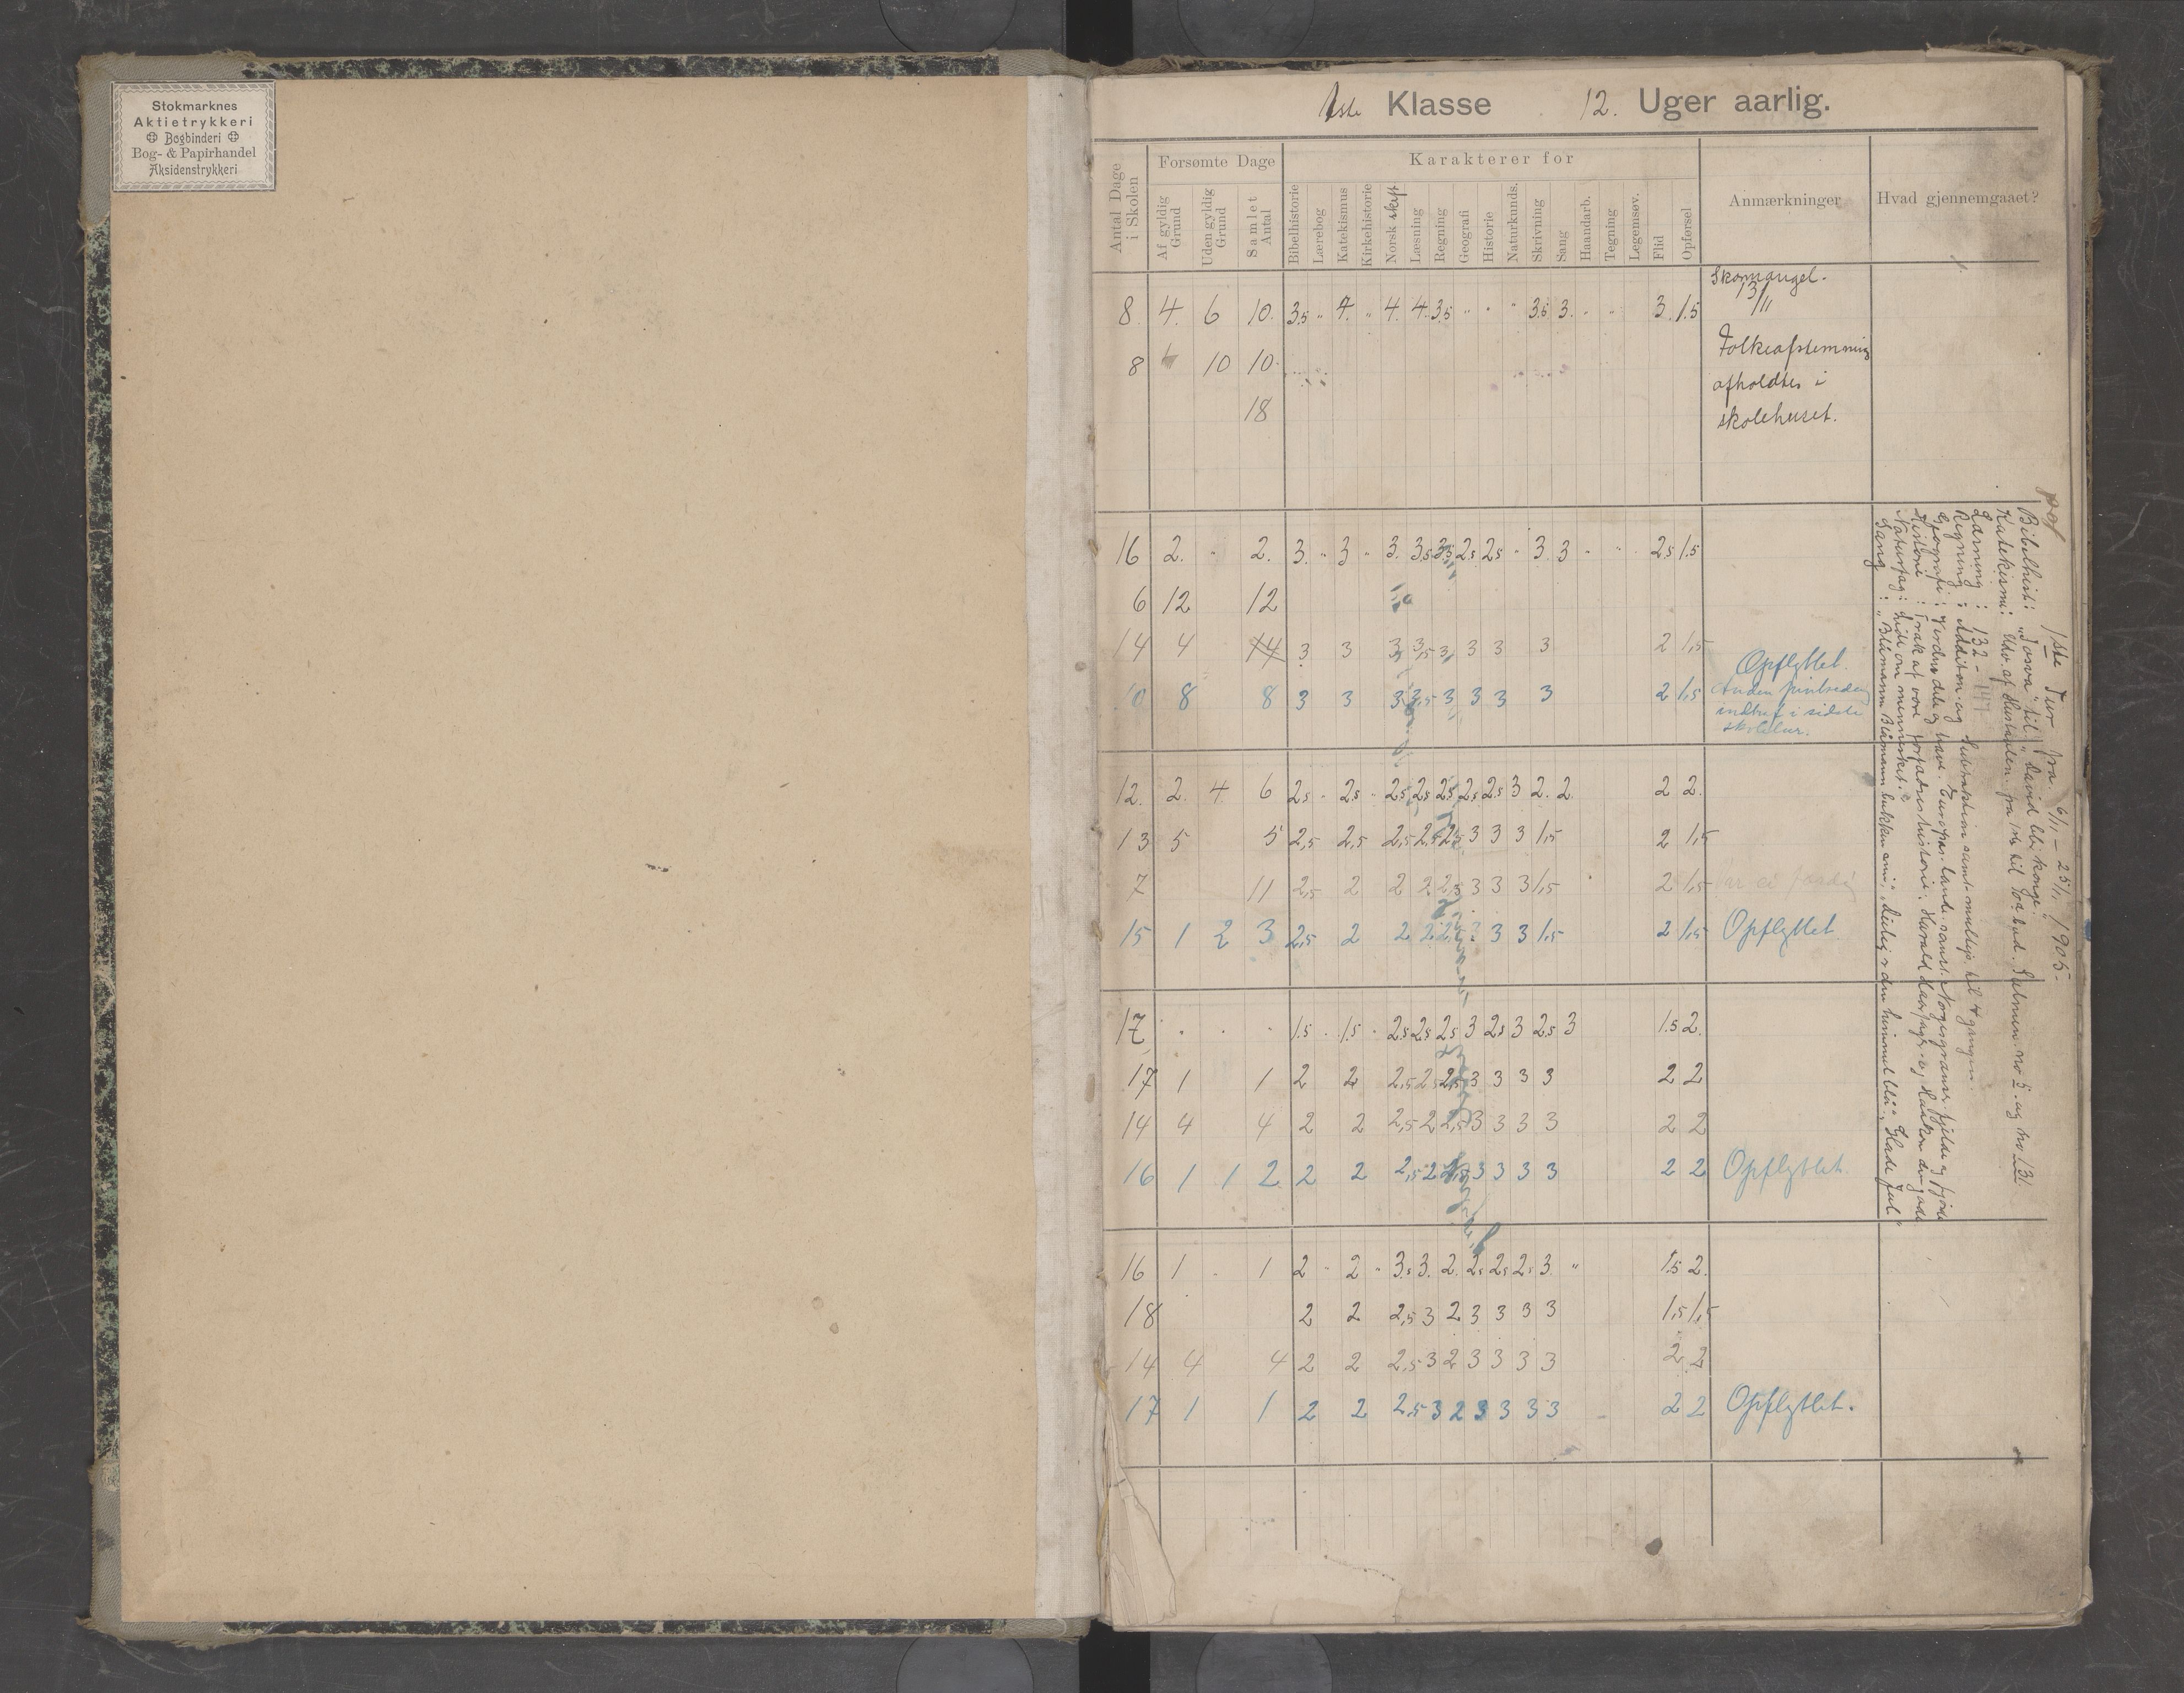 Stokmarknes
Aktietrykkeri
Bogbinderi
Bog- & Papirhandel
Aksidenstrykkeri
1ste Klasse 12. Uger aarlig.
Antal Dage i Skolen
Forsømte Dage
Af gyldig Grund
Uden gyldig Grund
Samlet Antal
Karakterer for
Bibelhistorie
Lærebog
Katekismus
Kirkehistorie
Norsk skrift
Læsning
Regning
Geografi
Historie
Naturkunds.
Skrivning
Sang
Haandarb.
Tegning
Legemsøv.
Flid
Opførsel
Anmærkninger
Hvad gjennemgaaet?
Skomangel.
8 4. 6 10. 3.5 " 4. " 4. 4. 3.5 " " " 3.5 3. " " 3. 1.5 13/11
8 10 10. Folkeafstemning
afholdtes i
18 skolehuset.
16 2. " 2. 3. " 3 " 3. 3.5 3.5 2.5 2.5 " 3. 3 " " 2.5 1.5
6 12 12
14 4 3 3 3 3,5 3 3 3 3 2 1,5
Opflyttet.
10 8 8 3 3 3 3,5 3 3 3 3 2 1,5
indtraf i sidste
skoletur.
12. 2. 4 6 2.5 " 2.5 " 2.5 2.5 2.5 2.5 2.5 3 2. 2. 2 2.
13 5 5 2,5 2,5 2,5 2,5 2,5 3 3 3 1,5 2 1,5
7 11 2,5 2 2 2 2,5 3 3 3 1,5 2 1,5
15 1 2 3 2,5 2 2 2 2,5 3 3 3 1,5 2 1,5 Opflyttet.
17 " " " 1.5 " 1.5 " 2.5 2.5 2.5 3 2.5 3 2.5 3 1.5 2.
17 1 1 2 2 2,5 2 2,5 3 3 3 3 2 2
14 4 4 2 2 2,5 2 2,5 3 3 3 3 2 2
16 1 1 2 2 2 2,5 2 2,5 3 3 3 3 2 2 Opflyttet.
16 1 " 1 2 " 2 " 3.5 3. 2. 2.5 2.5 2.5 3. " 1.5 2.
18 2 2 2,5 3 2 3 3 3 3 1,5 1,5
14 4 4 2 2 2,5 3 2 3 3 3 3 2 2
17 1 1 2 2 2,5 3 2 3 3 3 3 2 2 Opflyttet.
1ste Tur fra 6/11 – 25/11 1905.
Bibelhist: "Josva" til "David blir konge."
Katekismi: Udv. af Hustavlen fra 1ste til bud. Salmen no 5. og no 131.
Læsning: 132 –
Regning: Addition og Subtraktion samt multip. til 4 gangen.
Geografi: Verdensdele og have. Europas lande samt Norges grænser fjelde og fjorde
Historie: Træk af vore forfædres historie. Harald Haarfagre og Haakon den gode
Naturfag: Lidt om mennesket.
Sang: "Blåmann Blåmann bukken min", "Deilig er den himmel blå", "Glade Jul"